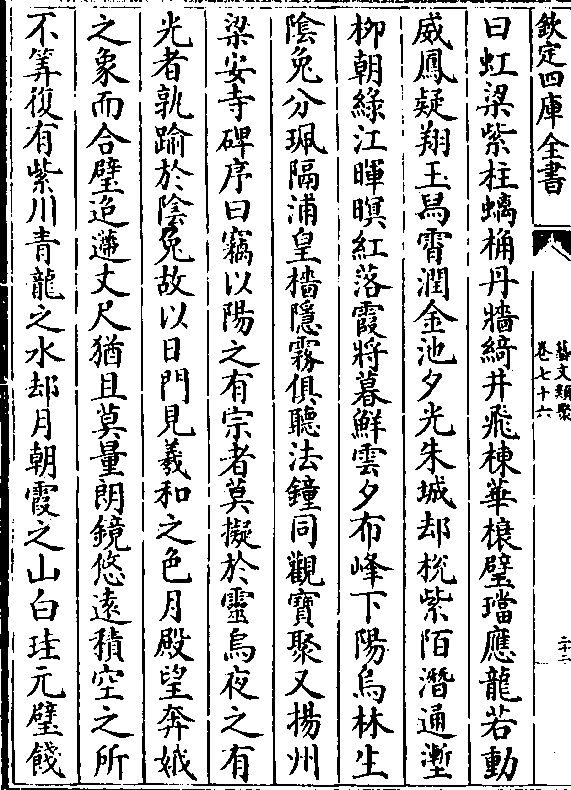 欽定四庫全書
藝文類聚
卷七十六
二十二
曰虹梁紫柱螭桷丹牆綺井飛棟華榱璧璫應龍若動
威鳳疑翔玉舄霄潤金池夕光朱城却枕紫陌潛通壍
柳朝綠江暉暝紅落霞將暮鮮雲夕布峰下陽烏林生
陰兔分珮隔浦皇檣隱霧俱聽法鐘同觀寶聚又揚州
梁安寺碑序曰竊以陽之有宗者莫擬於靈烏夜之有
光者孰踰於陰兔故以日門見羲和之色月殿望奔娥
之象而合璧迢遰丈尺猶且莫量朗鏡悠遠積空之所
不筭復有紫川青龍之水却月朝霞之山白珪元璧餞